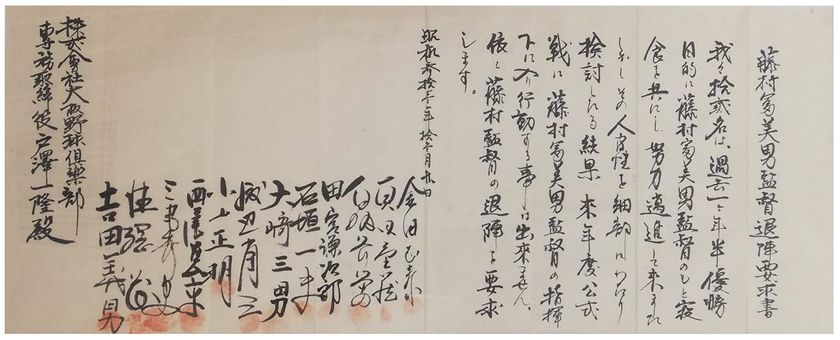 藤村富美男監督退陣要求書
我々拾弐名は、過去一ヶ年半優勝
目的に藤村富美男監督のもと寝
食を共にし努力邁進して来ました
しかしその人間性を細部にわたり
検討したる結果 来年度公式
戦に藤村富美男監督の指揮
下に入り行動する事は出来ません。
依て藤村監督の退陣を要求
します。
昭和参拾壱年拾
金田正泰
真田重蔵
田宮謙治郎
石垣一夫
大崎三男
渡辺省三
小山正明
三宅秀史
吉田義男
株式會社大阪野球倶楽部
専務取締役戸澤一隆殿